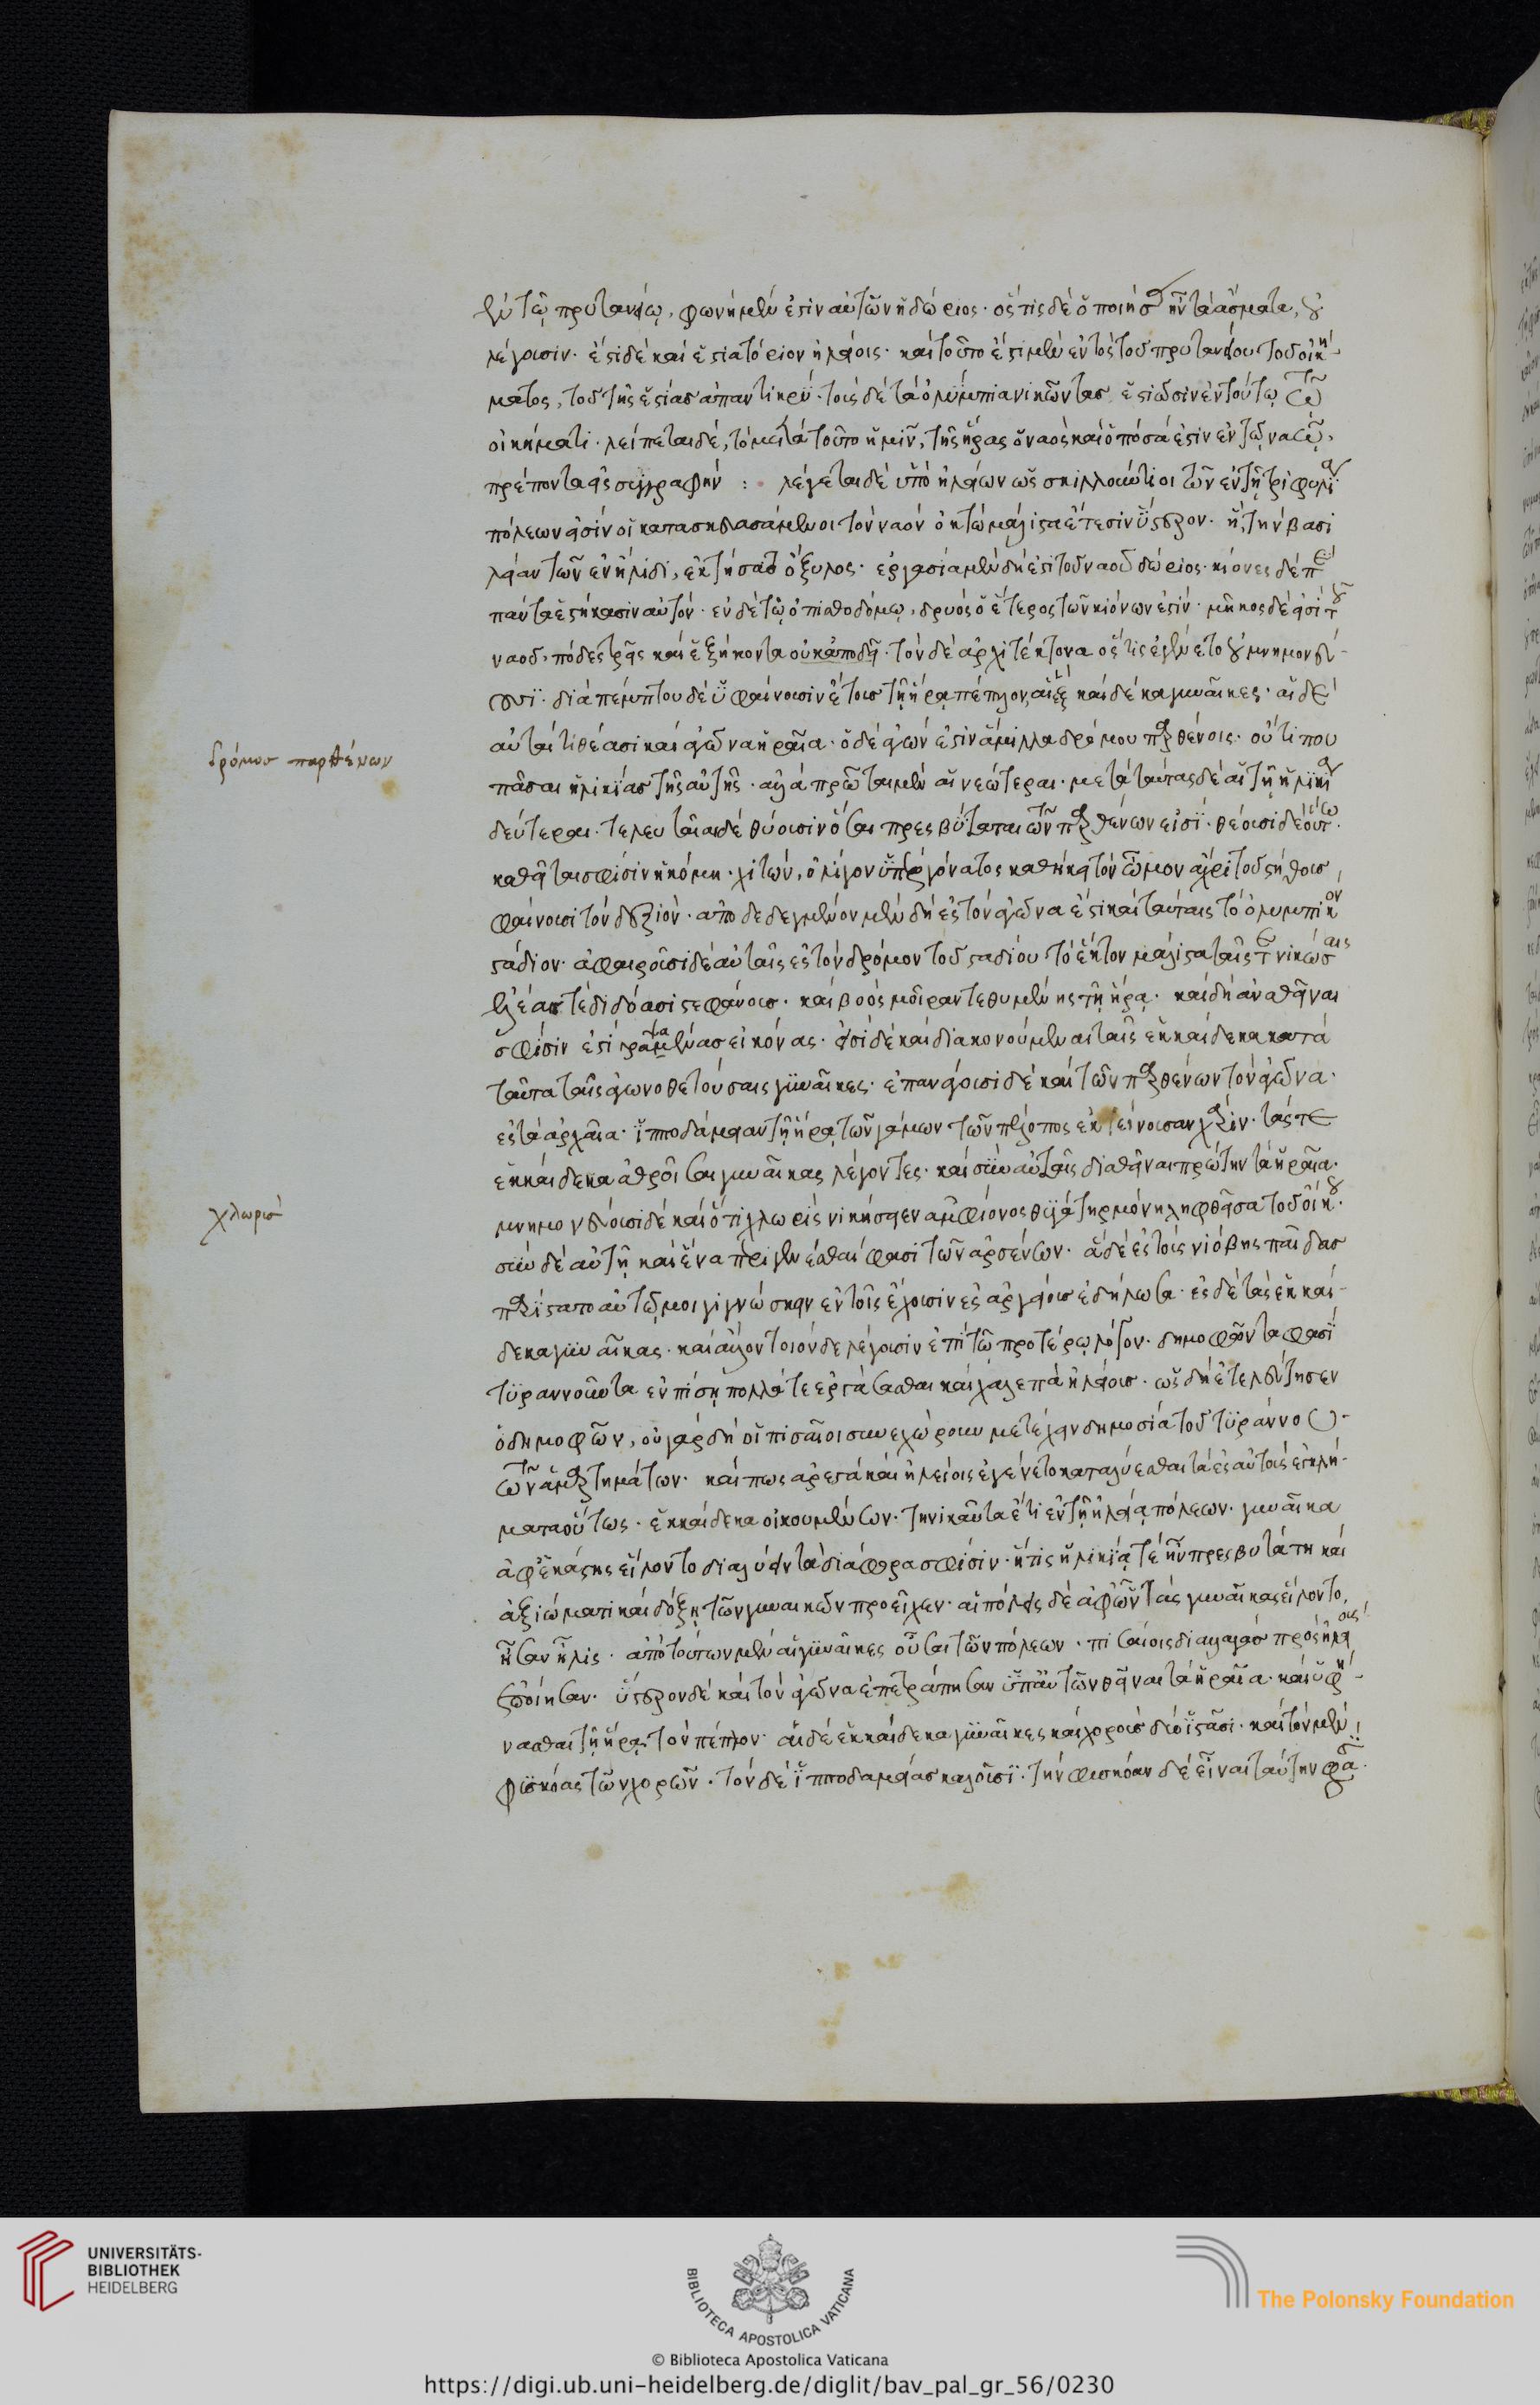 ἐν τῷ πρυτανείῳ, φωνὴ μέν ἐστιν αὐτῶν ἡ δώριος· ὅστις δὲ ὁ ποιήσας ἦν τὰ ἄσματα, οὐ
λέγουσιν· ἔστι δὲ καὶ ἑστιατόριον ἠλείοις· καὶ τοῦτο ἔστι μὲν ἐντὸς τοῦ πρυτανείου τοῦ οἰκή-
ματος, τοῦ τῆς ἑστίας ἀπαντικρύ· τοὺς δὲ τὰ ὀλύμπια νικῶντας ἑστιῶσιν ἐν τούτῳ τῷ
οἰκήματι· λείπεται δὲ, τὸ μετὰ τοῦτο ἡμῖν, τῆς ἥρας ὁ ναὸς καὶ ὁπόσα ἐστὶν ἐν τῷ ναῷ,
πρέποντα ἐς συγγραφήν : λέγεται δὲ ὑπὸ ἠλείων ὡς σκιλλούντιοι τῶν ἐν τῇ τριφυλίᾳ
πόλεων εἰσὶν οἱ κατασκευασάμενοι τὸν ναὸν ὀκτὼ μάλιστα ἔτεσιν ὕστερον· ἢ τὴν βασι
λείαν τῶν ἐν ἤλιδι, ἐκτήσατο ὄξυλος· ἐργασία μὲν δή ἐστι τοῦ ναοῦ δώριος· κίονες δὲ περὶ
πάντα ἑστήκασιν αὐτόν· ἐν δὲ τῷ ὀπισθοδόμῳ, δρυὸς ὁ ἕτερος τῶν κιόνων ἐστίν· μῆκος δὲ εἰσὶ τοῦ
ναοῦ, πόδες τρεῖς καὶ ἑξήκοντα οὐκ ἀποδεῖ· τὸν δὲ ἀρχιτέκτονα ὅστις ἐγένετο οὐ μνημονεύ-
ουσι· διὰ πέμπτου δὲ ὑφαίνουσιν ἔτους τῇ ἥρᾳ πέπλον, αἱ ἓξ καὶ δέκα γυναῖκες· αἱ δὲ
αὐταὶ τιθέασι καὶ ἀγῶνα ἡραῖα· ὁ δὲ ἀγών ἐστὶν ἅμιλλα δρόμου παρθένοις· οὔτι που
πᾶσαι ἡλικίας τῆς αὐτῆς· ἀλλὰ πρῶται μὲν αἱ νεώτεραι· μετὰ ταύτας δὲ αἱ τῇ ἡλικίᾳ
δεύτεραι· τελευταῖαι δὲ θύουσιν ὅσαι πρεσβύταται τῶν παρθένων εἰσί· θέουσι δὲ οὕτω·
καθεῖται σφίσιν ἡ κόμη· χιτών, ὀλίγον ὑπὲρ γόνατος καθήκει τὸν ὦμον ἄχρι τοῦ στήθους
φαίνουσι τὸν δεξιόν· ἀποδεδεγμένον μὲν δὴ ἐς τὸν ἀγῶνα ἐστὶ καὶ ταύταις τὸ ὀλυμπικὸν
στάδιον· ἀφαιροῦσι δὲ αὐταῖς ἐς τὸν δρόμον τοῦ σταδίου τὸ ἕκτον μάλιστα ταῖς τε νικώσαις
ἐλέας τε διδόασι στεφάνους· καὶ βοὸς μοῖραν τεθυμένης τῇ ἥρᾳ· καὶ δὴ ἀναθεῖναι
σφίσιν ἐστὶ γραψαμένας εἰκόνας· εἰσὶ δὲ καὶ διακονούμεναι ταῖς ἑκκαίδεκα κατὰ
ταῦτα ταῖς ἀγωνοθετούσαις γυναῖκες· ἐπανάγουσι δὲ καὶ τῶν παρθένων τὸν ἀγῶνα·
ἐς τὰ ἀρχαῖα· ἱπποδάμειαν τῇ ἥρᾳ τῶν γάμων τῶν πέλοπος ἐκτείνουσαν χάριν· τάς τε
ἑκκαίδεκα ἀθροῖσαι γυναῖκας λέγοντες· καὶ σὺν αὐταῖς διαθεῖναι πρώτην τὰ ἡραῖα·
μνημονεύουσι δὲ καὶ ὅτι χλωρὶς νικήσειεν ἀμφίονος θυγάτηρ μόνη λειφθεῖσα τοῦ οἴκου·
σὺν δὲ αὐτῇ καὶ ἕνα περιγενέσθαι φασὶ τῶν ἀρσένων· ἃ δὲ ἐς τοὺς νιόβης παῖδας
παρίστατο αὐτῷ μοι γιγνώσκειν ἐν τοῖς ἔχουσιν ἐς ἀργείους ἐδήλωσα· ἐς δὲ τὰς ἑκκαί-
δεκα γυναῖκας· καὶ ἄλλον τοιόνδε λέγουσιν ἐπὶ τῷ προτέρῳ λόγον· δημοφῶντα φασὶ
τυραννοῦντα ἐν πίσῃ πολλά τε ἐργάσασθαι καὶ χαλεπὰ ἠλείους· ὡς δὴ ἐτελεύτησεν
ὁ δημοφῶν, οὐ γὰρ δὴ οἱ πισαῖοι συνεχώρουν μετέχειν δημοσίᾳ τοῦ τυράννου
τῶν ἁμαρτημάτων· καί πως ἀρεστὰ καὶ ἠλείοις ἐγένετο καταλύεσθαι τὰ ἐς αὐτοὺς ἐγκλή-
ματα οὕτως· ἑκκαίδεκα οἰκουμένων· τηνικαῦτα ἔτι ἐν τῇ ἠλείᾳ πόλεων· γυναῖκα
ἀφ' ἑκάστης εἵλοντο διαλύειν τὰ διάφορα σφίσιν· ἥτις ἡλικίᾳ τὲ ἦν πρεσβυτάτη καὶ
ἀξιώματι καὶ δόξῃ τῶν γυναικῶν προεῖχεν· αἱ πόλεις δὲ ἀφ' ὧν τὰς γυναῖκας εἵλοντο,
ἦσαν ἦλις· ἀπὸ τούτων μὲν αἱ γυναῖκες οὖσαι τῶν πόλεων· πισαίοις διαλλαγὰς πρὸς ἠλείους
ἐποίησαν· ὕστερον δὲ καὶ τὸν ἀγῶνα ἐπετράπησαν ὑπ' αὐτῶν θεῖναι τὰ ἡραῖα· καὶ ὑφή-
νασθαι τῇ ἥρᾳ τὸν πέπλον· αἱ δὲ ἑκκαίδεκα γυναῖκες καὶ χοροὺς δύο ἱστᾶσι· καὶ τὸν μὲν
φυσκόας τῶν χορῶν· τὸν δὲ ἱπποδαμείας καλοῦσι· τὴν φυσκόαν δὲ εἶναι ταύτην φασὶν
δρόμος παρθένων
χλωρισ
UNIVERSITÄTS-
BIBLIOTHEK
HEIDELBERG
BIBLIOTECA APOSTOLICA VATICANA
The Polonsky Foundation
© Biblioteca Apostolica Vaticana
https://digi.ub.uni-heidelberg.de/diglit/bav_pal_gr_56/0230